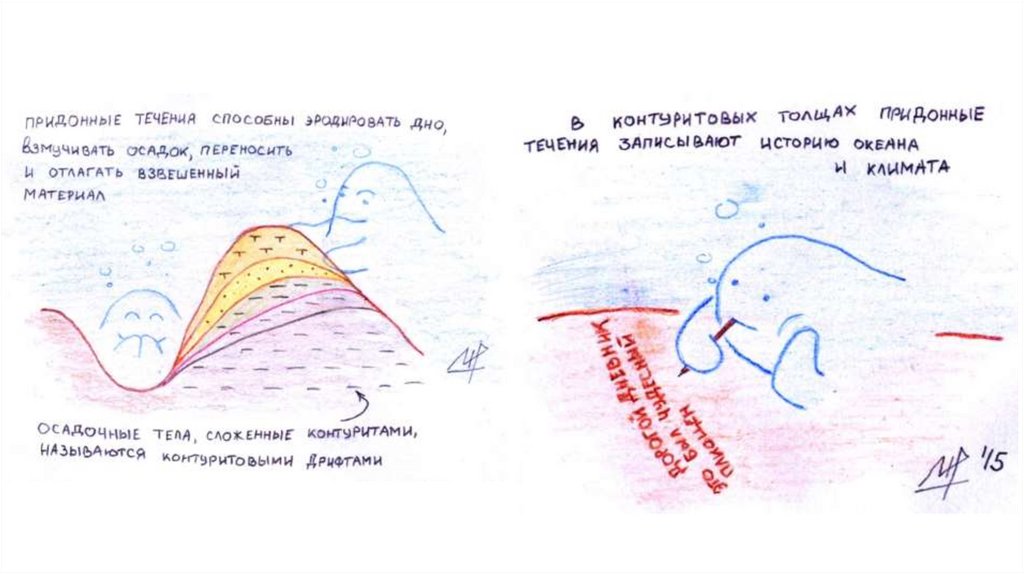 ПРИДОННЫЕ ТЕЧЕНИЯ СПОСОБНЫ ЭРОДИРОВАТЬ ДНО,
ВЗМУЧИВАТЬ ОСАДОК, ПЕРЕНОСИТЬ
И ОТЛАГАТЬ ВЗВЕШЕННЫЙ
МАТЕРИАЛ
ОСАДОЧНЫЕ ТЕЛА, СЛОЖЕННЫЕ КОНТУРИТАМИ,
НАЗЫВАЮТСЯ КОНТУРИТОВЫМИ ДРИФТАМИ
В КОНТУРИТОВЫХ ТОЛЩАХ ПРИДОННЫЕ
ТЕЧЕНИЯ ЗАПИСЫВАЮТ ИСТОРИЮ ОКЕАНА
И КЛИМАТА
ДОРОГОЙ ДНЕВНИК
ЭТО БЫЛ ЧУДЕСНЫЙ
ПЛИОЦЕН
'15